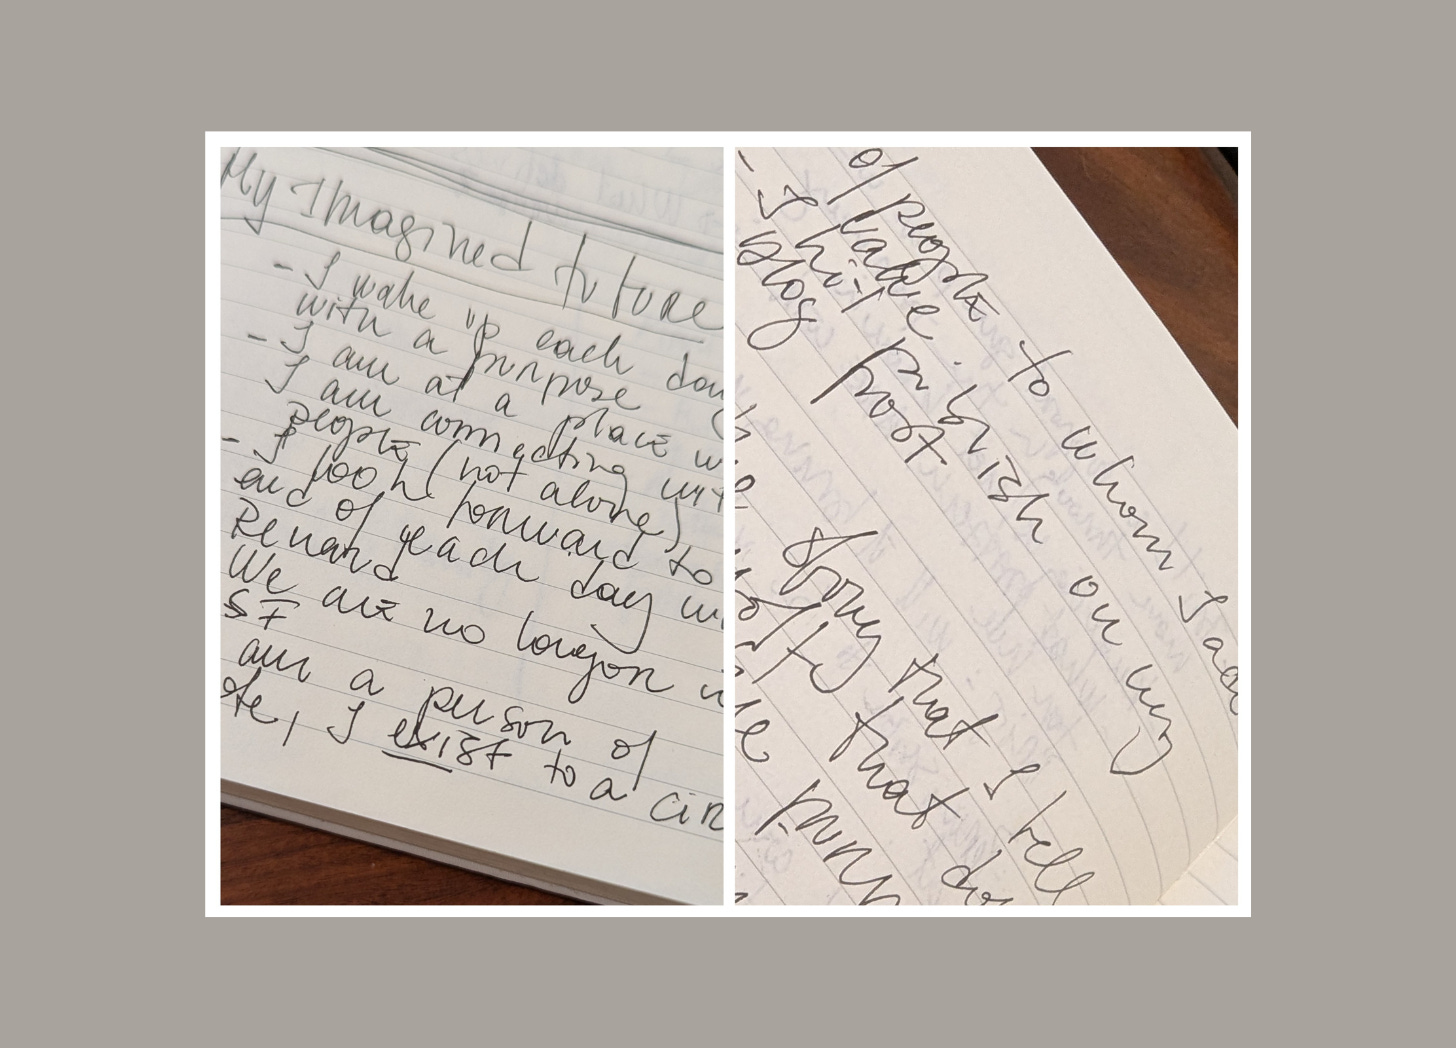 My Imagined future
- I wake up each day
with a purpose
- I am at a place w
I am connecting wit
people (not alone)
- I look forward to
end of each day w
Renard
We are no longer i
SF
am a person of
te, I exist to a cir
of people to whom I ad
value.
- I hit publish on my
blog post
Story that I tell
that